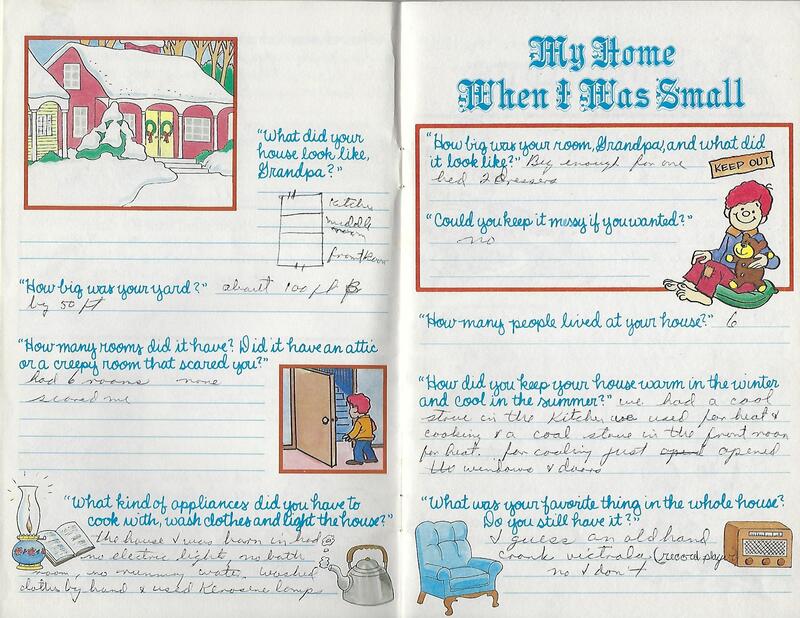 "What did your
house look like,
Grandpa?"
Kitchen
middle
room
front Room
"How big was your yard?" about 100 ft
by 50 ft
"How many rooms did it have? Did it have an attic
or a creepy room that scared you?"
had 6 rooms none
scared me
"What kind of appliances did you have to
cook with, wash clothes and light the house?"
the house I was born in had
no electric light, no bath
room, no running water. washed
clothes by hand & used Kerosene lamps
My Home
When I Was Small
"How big was your room, Grandpa, and what did
it look like?" Big enough for one
bed 2 dressers
KEEP OUT
"Could you keep it messy if you wanted?"
no
"How many people lived at your house?" 6
"How did you keep your house warm in the winter
and cool in the summer?" we had a cool
stove in the Kitchen we used for heat &
cooking & a coal stove in the front room
for heat. for cooling just opened
the windows & doors
"What was your favorite thing in the whole house?
Do you still have it?"
I guess an old hand
crank victrola (record player
no I don't